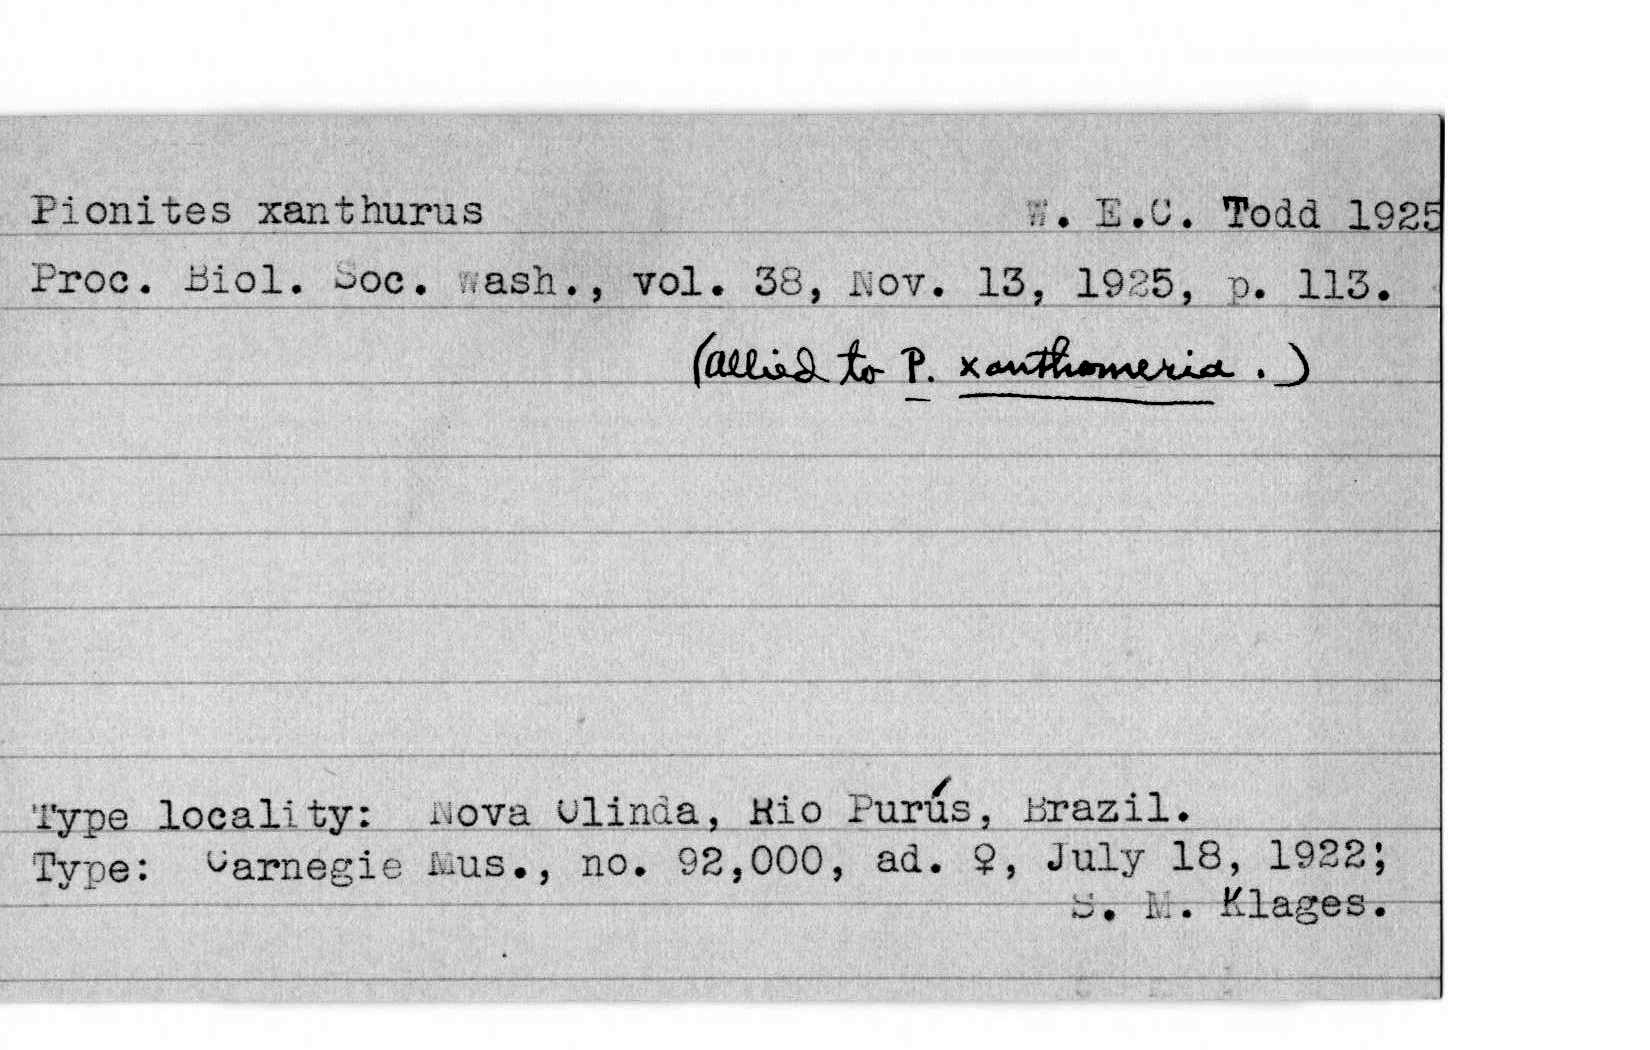 Pionites xanthurus W. E.C. Todd 1925
Proc. Biol. Soc. Wash., vol. 38, Nov. 13, 1925, p. 113.
(allied to P. xanthomeria.)
Type locality: Nova Olinda, Rio Purús, Brazil.
Type: Carnegie Mus., no. 92,000, ad. ♀, July 18, 1922;
S. M. Klages.